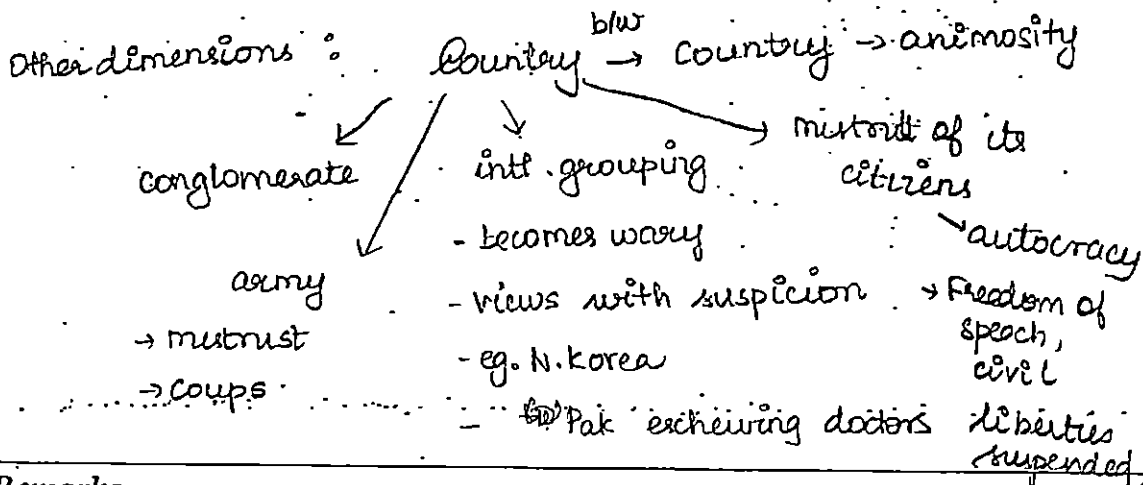 Other dimensions : Country → b/w Country → animosity
conglomerate
army
→ mistrust
→ coups
intl. grouping
- becomes wary
- views with suspicion
- eg. N. Korea
- Pak eschewing doctors
mistrust of its
citizens
→ autocracy
→ Freedom of
speech,
civil
liberties
suspended
Remarks